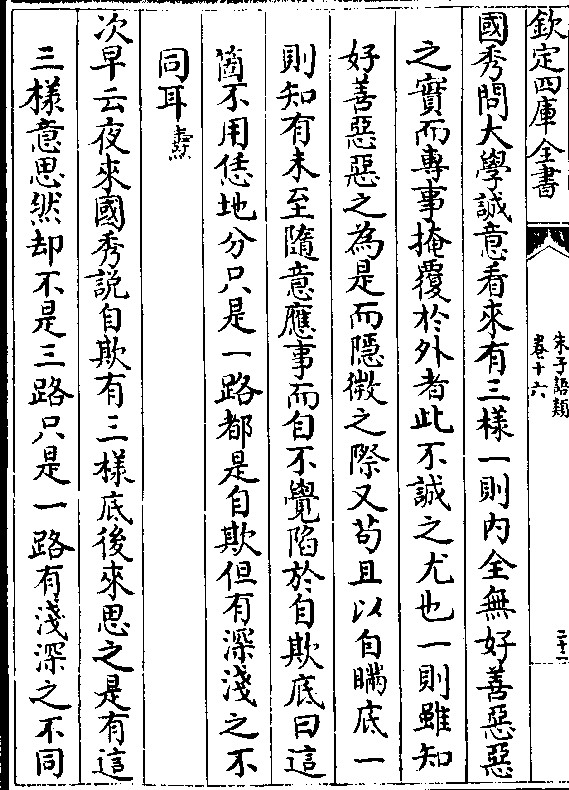 欽定四庫全書
朱子語類
卷十六
二十二
國秀問大學誠意看來有三樣一則内全無好善惡惡
之實而專事掩覆於外者此不誠之尤也一則雖知
好善惡惡之為是而隱微之際又苟且以自瞞底一
則知有未至隨意應事而自不覺陷於自欺底曰這
箇不用恁地分只是一路都是自欺但有深淺之不
同耳燾
次早云夜來國秀説自欺有三樣底後來思之是有這
三樣意思然却不是三路只是一路有淺深之不同